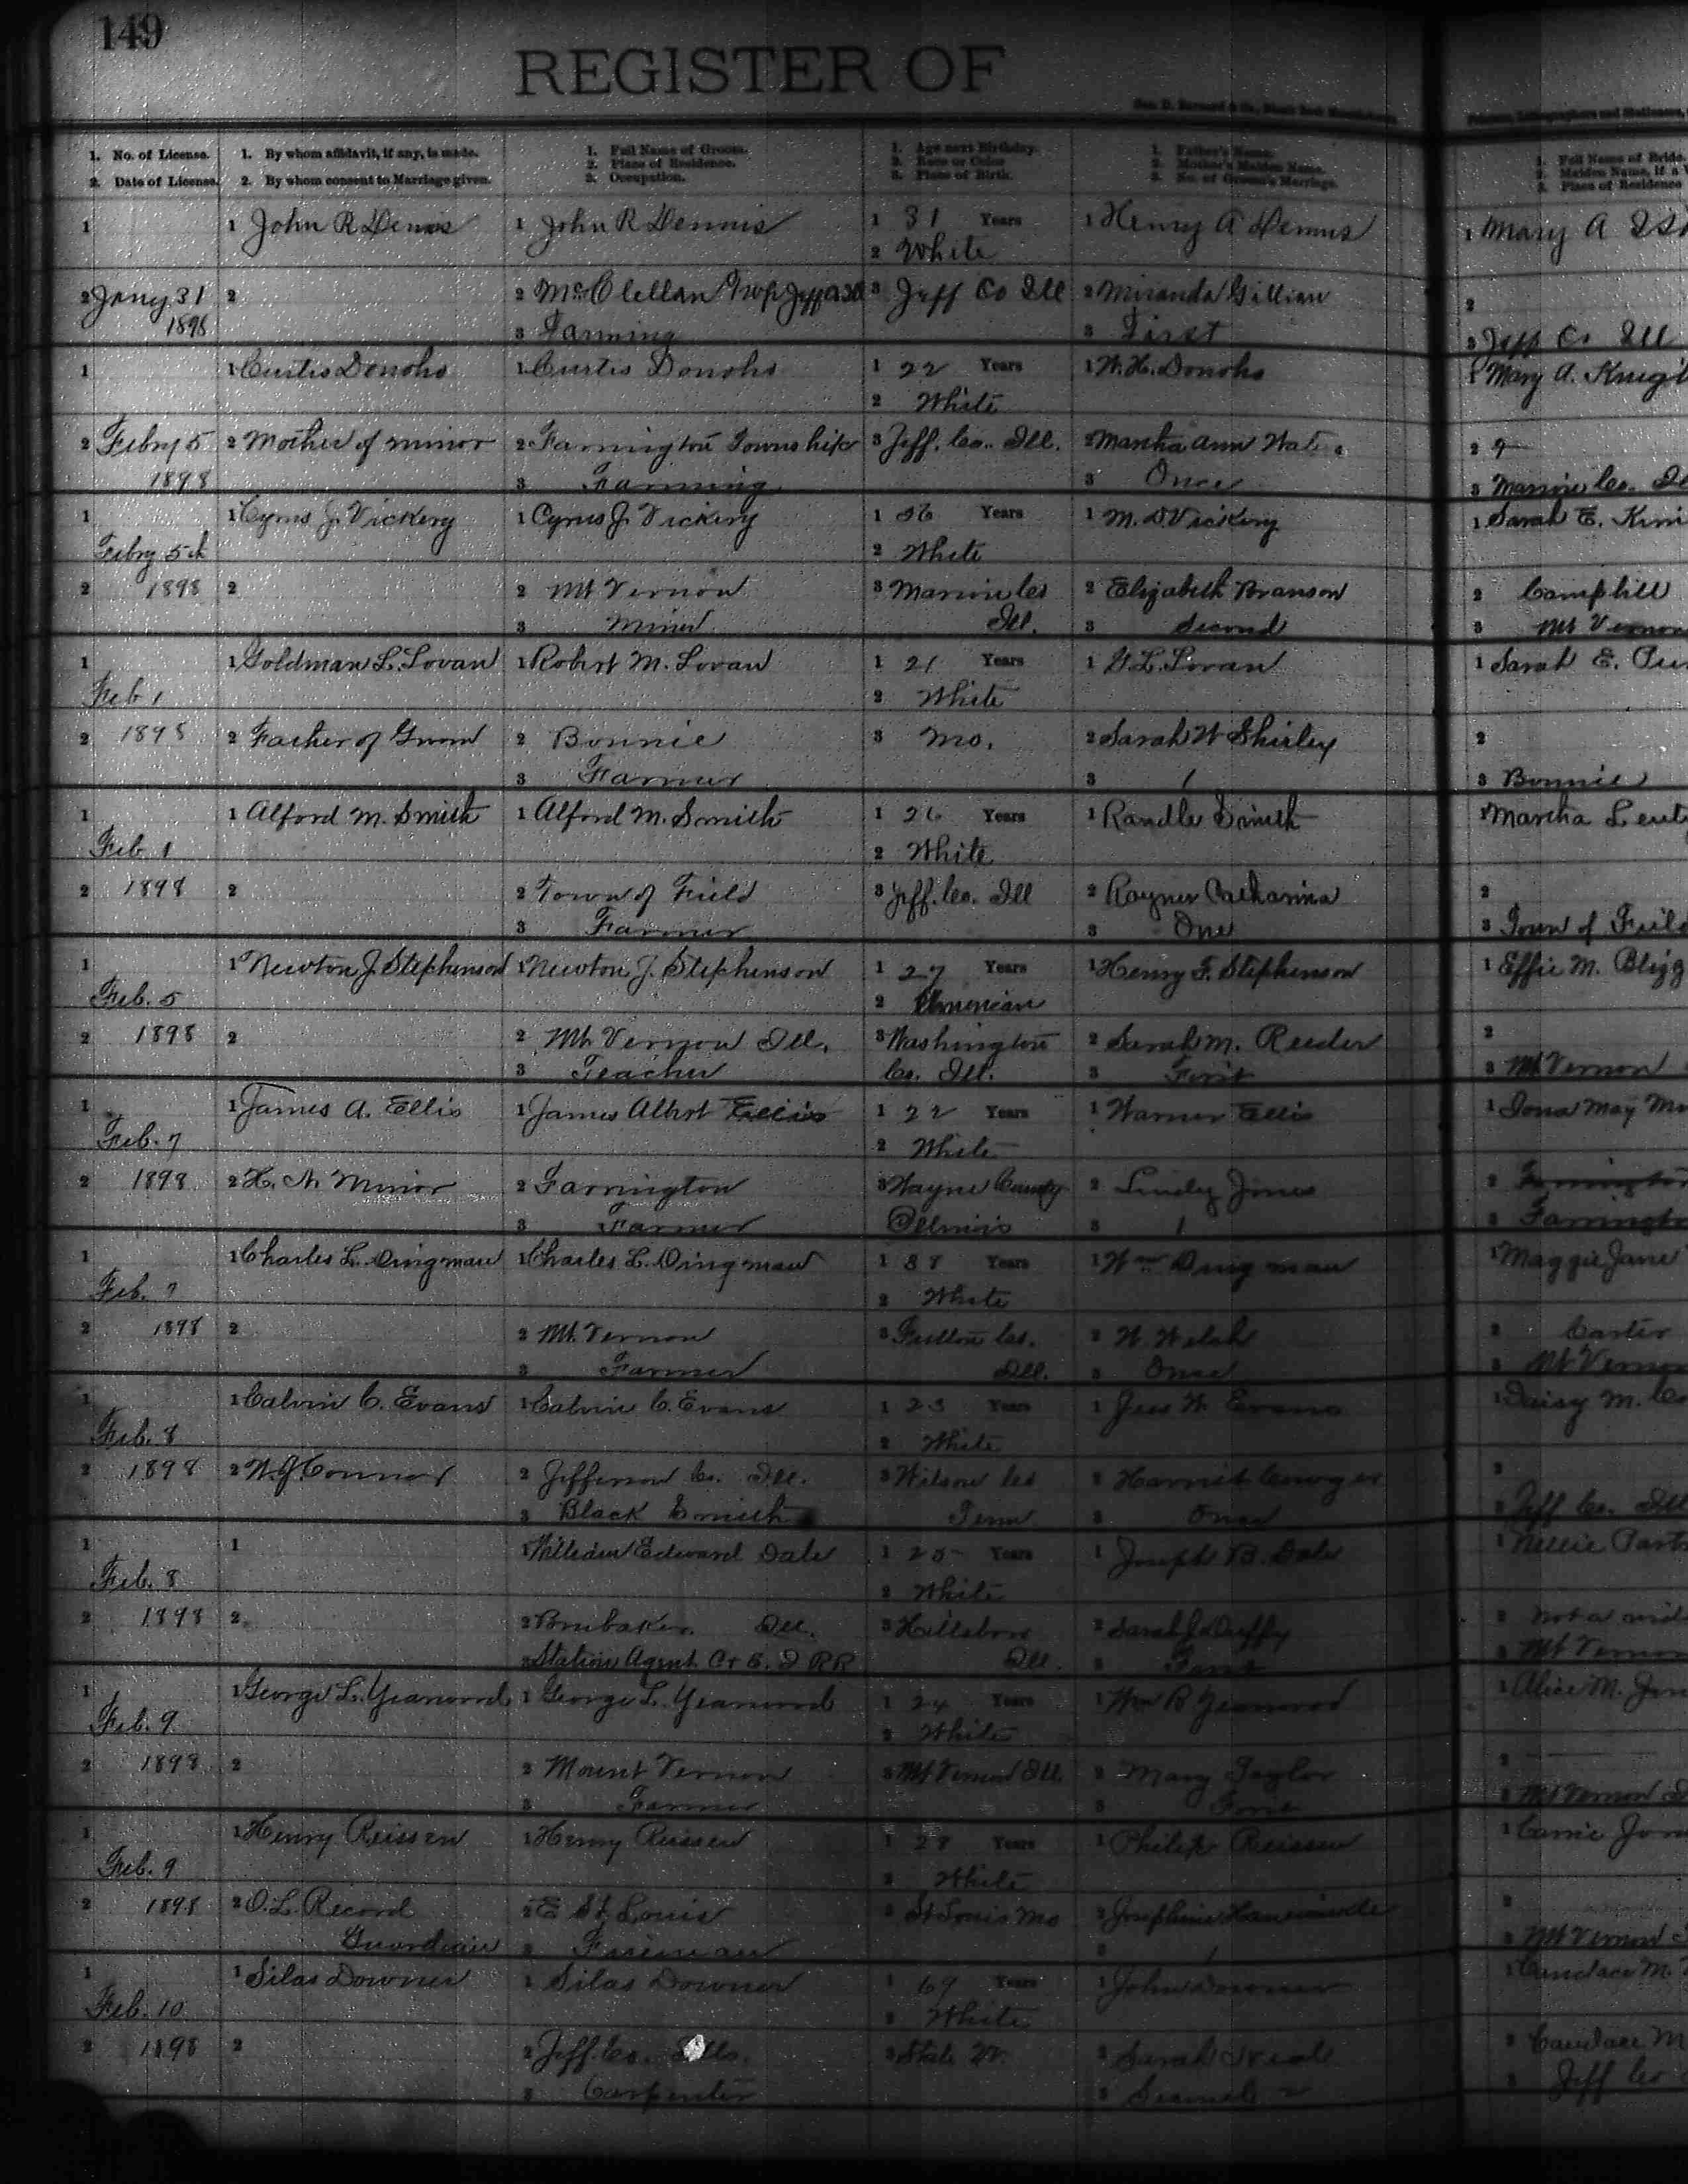 149
REGISTER OF
1. No. of License.
2. Date of License.
1. By whom affidavit, if any, is made.
2. By whom consent to Marriage given.
1. Full Name of Groom.
2. Place of Residence.
3. Occupation.
1. Age next Birthday.
2. Race or Color
3. Place of Birth.
1. Father's Name.
2. Mother's Maiden Name.
3. No. of Groom's Marriage.
1. Full Name of Bride.
2. Maiden Name, if a
3. Place of Residence
1 1 John R Dennis 1 John R Dennis 1 31 Years 1 Henry A Dennis 1 Mary A
2 White
2 Jany 31 2 2 McClellan Twp 3 Jeff Co Ill 2 Miranda Gillian 2
1898 3 Farming 3 First 3 Jeff Co Ill
1 1 Curtis Donoho 1 Curtis Donoho 1 22 Years 1 W. H. Donoho 1 Mary A.
2 White
2 Febry 5 2 Mother of minor 2 Farrington Township 3 Jeff. Co. Ill. 2 Martha Ann 2
1898 3 Farming 3 Once 3 Marion Co.
1 1 Cyrus J. Vickery 1 Cyrus J. Vickery 1 36 Years 1 M. D Vickery 1 Sarah E.
Febry 5th 2 White
2 1898 2 2 Mt Vernon 3 Marion Co 2 Elizabeth Branson 2 Camphill
3 Miner Ill. 3 Second 3 Mt Vernon
1 1 Goldman L. Lovan 1 Robert M. Lovan 1 21 Years 1 G. L. Lovan 1 Sarah E.
Feb 1 2 White
2 1898 2 Father of Groom 2 Bonnie 3 Mo. 2 Sarah W Shirley 2
3 Farmer 3 1 3 Bonnie
1 1 Alford M. Smith 1 Alford M. Smith 1 26 Years 1 Randle Smith 1 Martha
Feb 1 2 White
2 1898 2 2 Town of Field 3 Jeff. Co. Ill 2 Rayner Catharina 2
3 Farmer 3 One 3 Town of Field
1 1 Newton J. Stephenson 1 Newton J. Stephenson 1 27 Years 1 Henry F. Stephenson 1 Effie M.
Feb. 5 2 American
2 1898 2 2 Mt Vernon Ill. 3 Washington 2 Sarah M. Reeder 2
3 Teacher Co. Ill. 3 First 3 Mt Vernon
1 1 James A. Ellis 1 James Albert Ellis 1 22 Years 1 Warner Ellis 1 Iona May
Feb. 7 2 White
2 1898 2 H. N. Minor 2 Farrington 3 Wayne County 2 Lindy Jones 2 Farrington
3 Farmer Illinois 3 1 3
1 1 Charles L. Dingman 1 Charles L. Dingman 1 38 Years 1 Wm Dingman 1 Maggie Jane
Feb. 7 2 White
2 1898 2 2 Mt. Vernon 3 Fulton Co. 2 W. Welsh 2 Carter
3 Farmer Ill. 3 Once 3 Mt Vernon
1 1 Calvin C. Evans 1 Calvin C. Evans 1 23 Years 1 Jess W. Evans 1 Daisy M.
Feb. 8 2 White
2 1898 2 W. J. Connor 2 Jefferson Co. Ill. 3 Wilson Co 2 Harriet 2
3 Black Smith Tenn 3 Once 3 Jeff Co. Ill
1 1 1 William Edward Dale 1 25 Years 1 Joseph B. Dale 1 Nellie
Feb. 8 2 White
2 1898 2 2 Brubaker Ill. 3 Hillsboro 2 Sarah J Duffy 2 not a
3 Station Agent C + E. I RR Ill. 3 First 3 Mt Vernon
1 1 George L. Yearwood 1 George L. Yearwood 1 24 Years 1 Wm B Yearwood 1 Alice M.
Feb. 9 2 White
2 1898 2 2 Mount Vernon 3 Mt Vernon Ill. 2 Mary Taylor 2
3 Farmer 3 3 Mt Vernon
1 1 Henry Reissen 1 Henry Reissen 1 28 Years 1 Philip Reissen 1 Carrie
Feb. 9 2 White
2 1898 2 O. L. Record 2 E St. Louis 3 St Louis Mo 2 Josephine 2
Guardian 3 Fireman 3 1 3 Mt Vernon
1 1 Silas Downer 1 Silas Downer 1 69 Years 1 John Downer 1 Candace M.
Feb. 10 2 White
2 1898 2 2 Jeff. Co. Ills. 3 State 2 Sarah 2 Candace M
3 Carpenter 3 3 Jeff Co